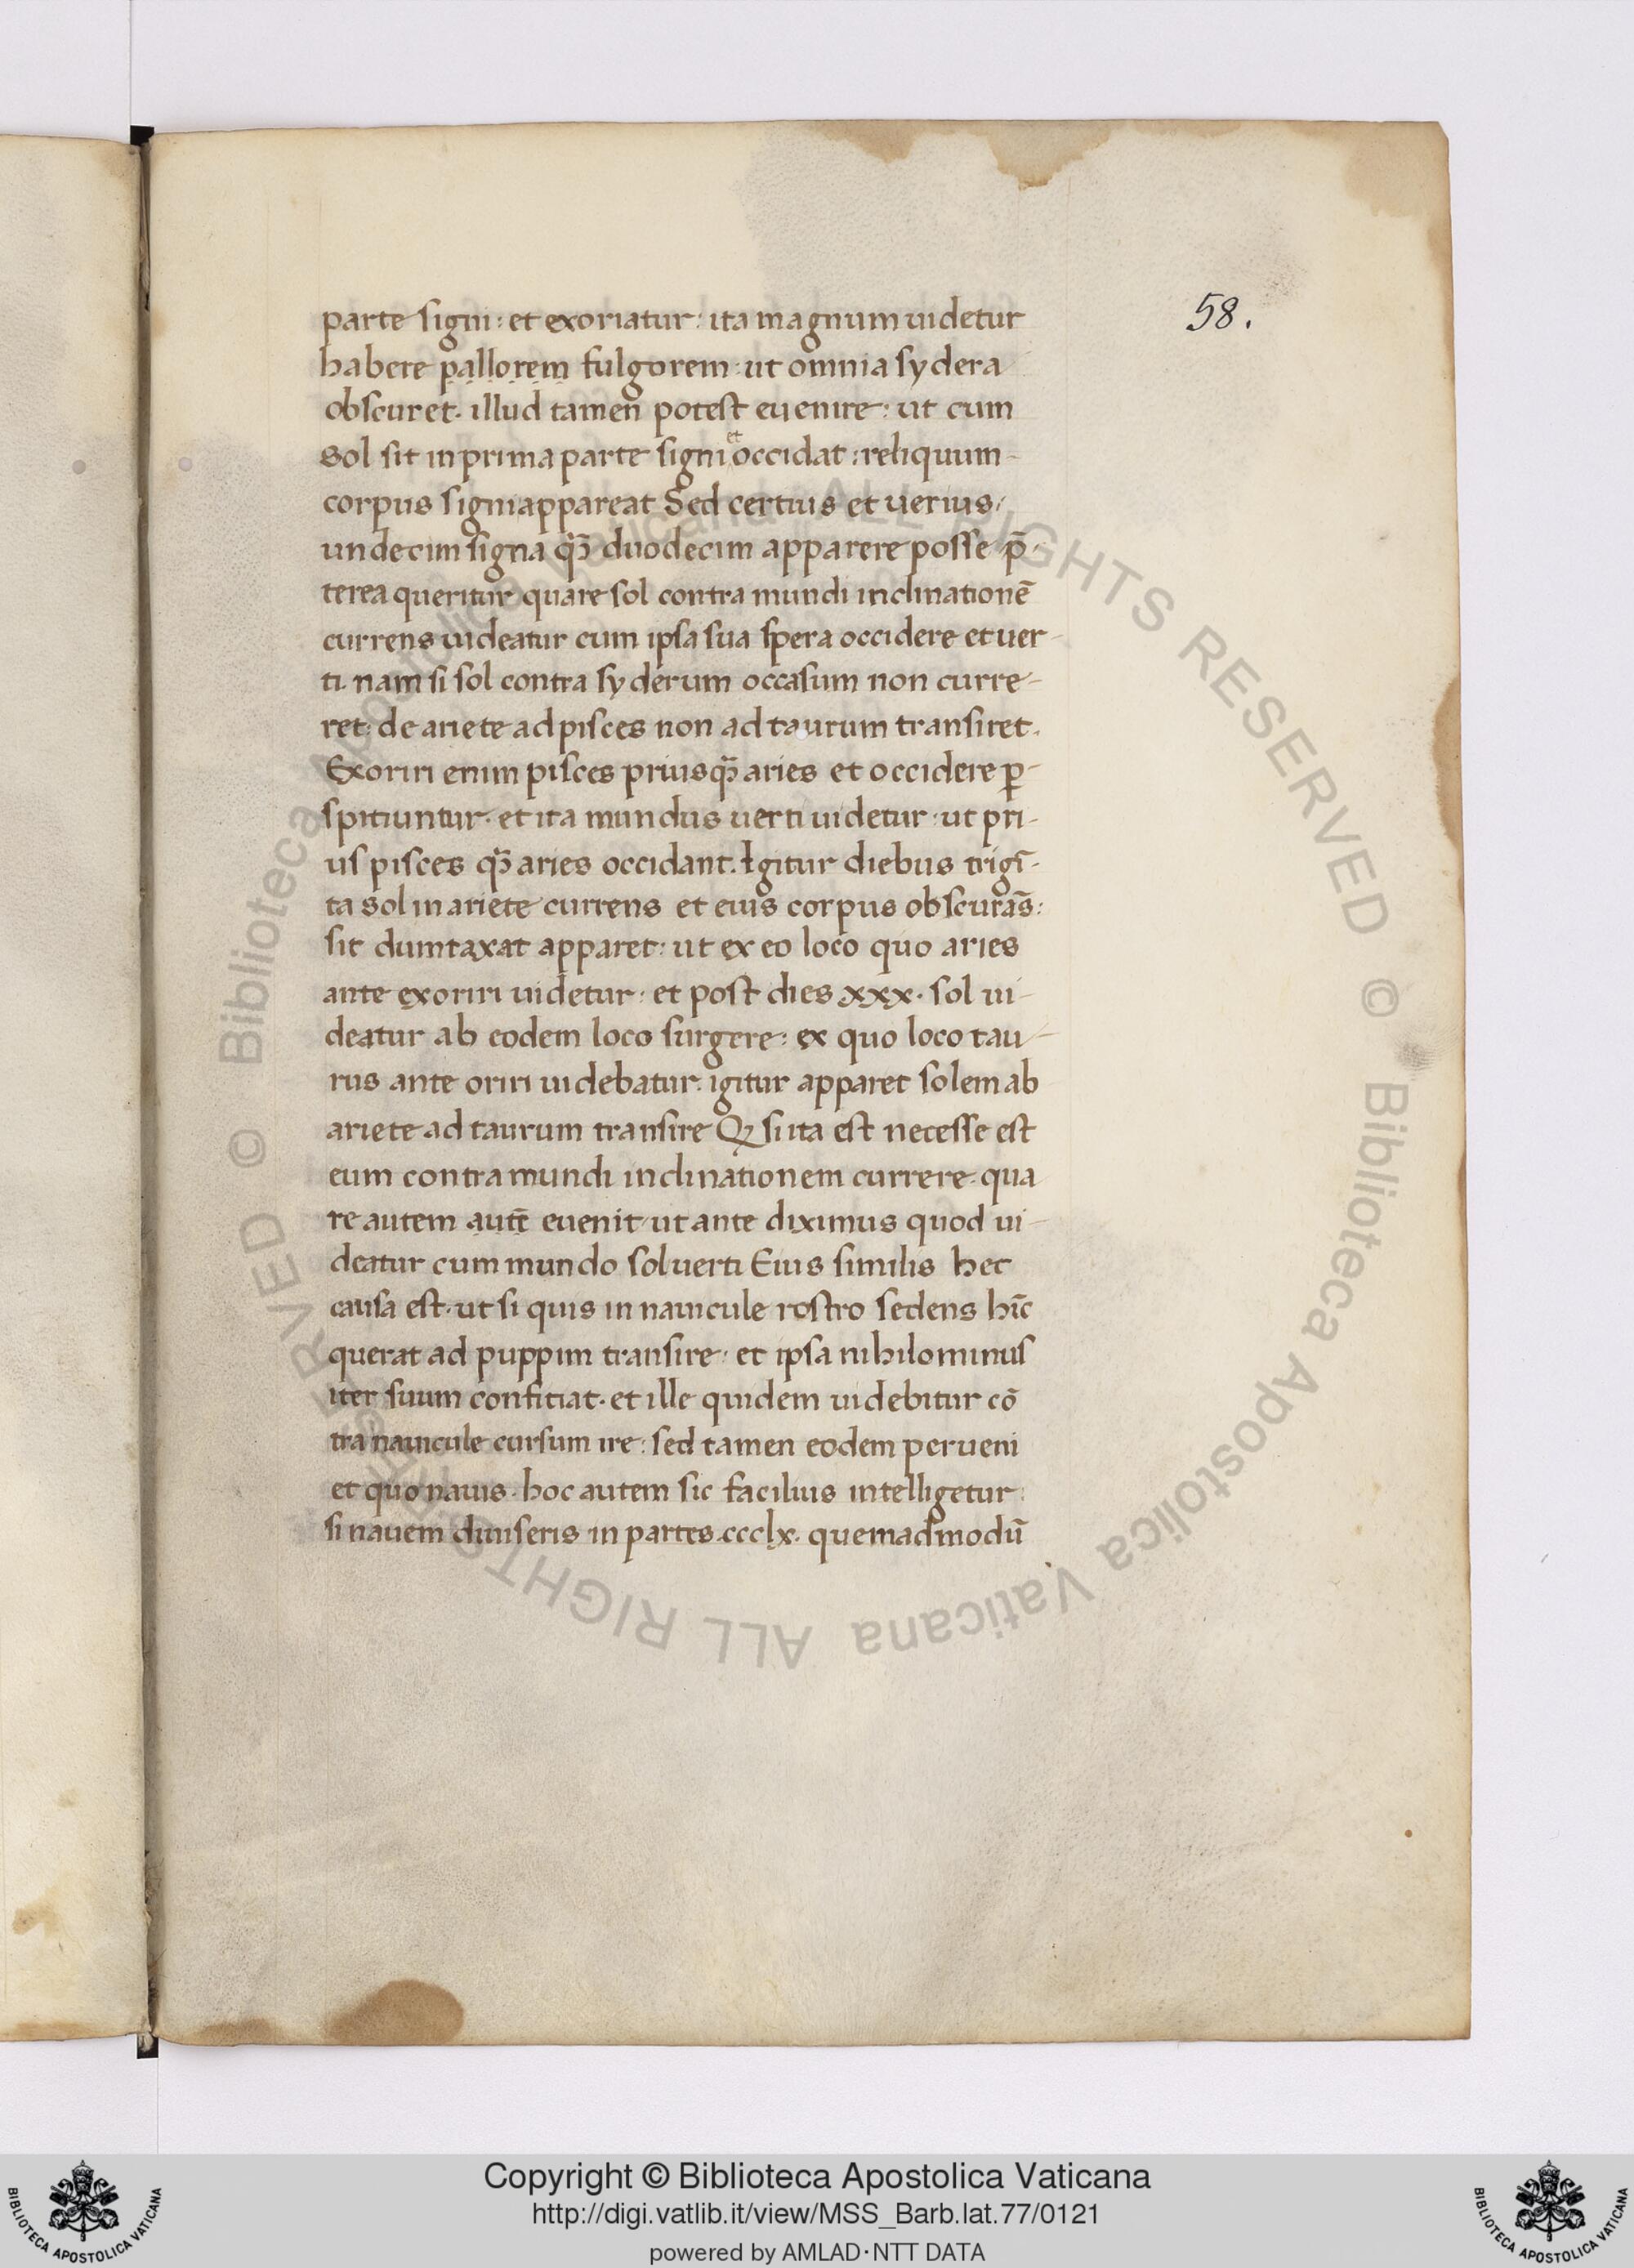 58.
parte signi: et exoriatur: ita magnum uidetur
habere pallorem fulgorem: ut omnia sydera
obscuret. illud tamen potest euenire: ut cum
sol sit in prima parte signi et occidat: reliquum
corpus signi appareat Sed certius et uerius/
undecim signa qm̄ duodecim apparere posse p̄-
terea queritur quare sol contra mundi inclinationē
currens uideatur cum ipsa sua spera occidere et uer-
ti. nam si sol contra syderum occasum non curre-
ret: de ariete ad pisces non ad taurum transiret.
Exoriri enim pisces priusq̄ aries et occidere ꝑ-
spitiuntur. et ita mundus uerti uidetur: ut pri-
us pisces q̄ aries occidant. Igitur diebus trigī-
ta sol in ariete currens et eius corpus obscurās:
sit dumtaxat apparet: ut ex eo loco quo aries
ante exoriri uidetur: et post dies xxx. sol ui-
deatur ab eodem loco surgere: ex quo loco tau-
rus ante oriri uidebatur. igitur apparet solem ab
ariete ad taurum transire Qꝫ si ita est necesse est
eum contra mundi inclinationem currere. qua
re autem autē euenit ut ante diximus quod ui-
deatur cum mundo sol uerti Eius similis hec
causa est. ut si quis in nauicule rostro sedens hīc
querat ad puppim transire: et ipsa nihilominus
iter suum confitiat. et ille quidem uidebitur cō
tra nauicule cursum ire: sed tamen eodem perueni
et quo nauis. hoc autem sic facilius intelligetur:
si nauem diuiseris in partes .ccclx. quemadmodū
© Biblioteca Apostolica Vaticana ALL RIGHTS RESERVED © Biblioteca Apostolica Vaticana ALL RIGHTS RESERVED
Copyright © Biblioteca Apostolica Vaticana
http://digi.vatlib.it/view/MSS_Barb.lat.77/0121
powered by AMLAD·NTT DATA
BIBLIOTECA APOSTOLICA VATICANA
BIBLIOTECA APOSTOLICA VATICANA